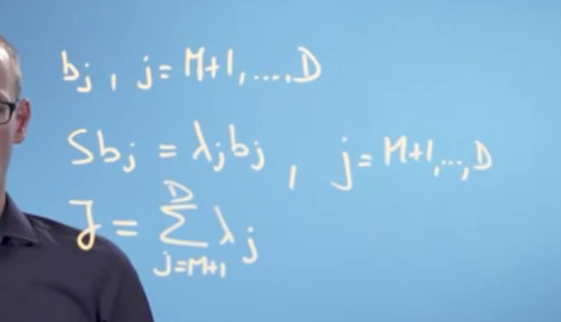 b_j , j = M+1, ..., D
Sb_j = λ_j b_j , j = M+1, ..., D
J = ∑_{j=M+1}^{D} λ_j